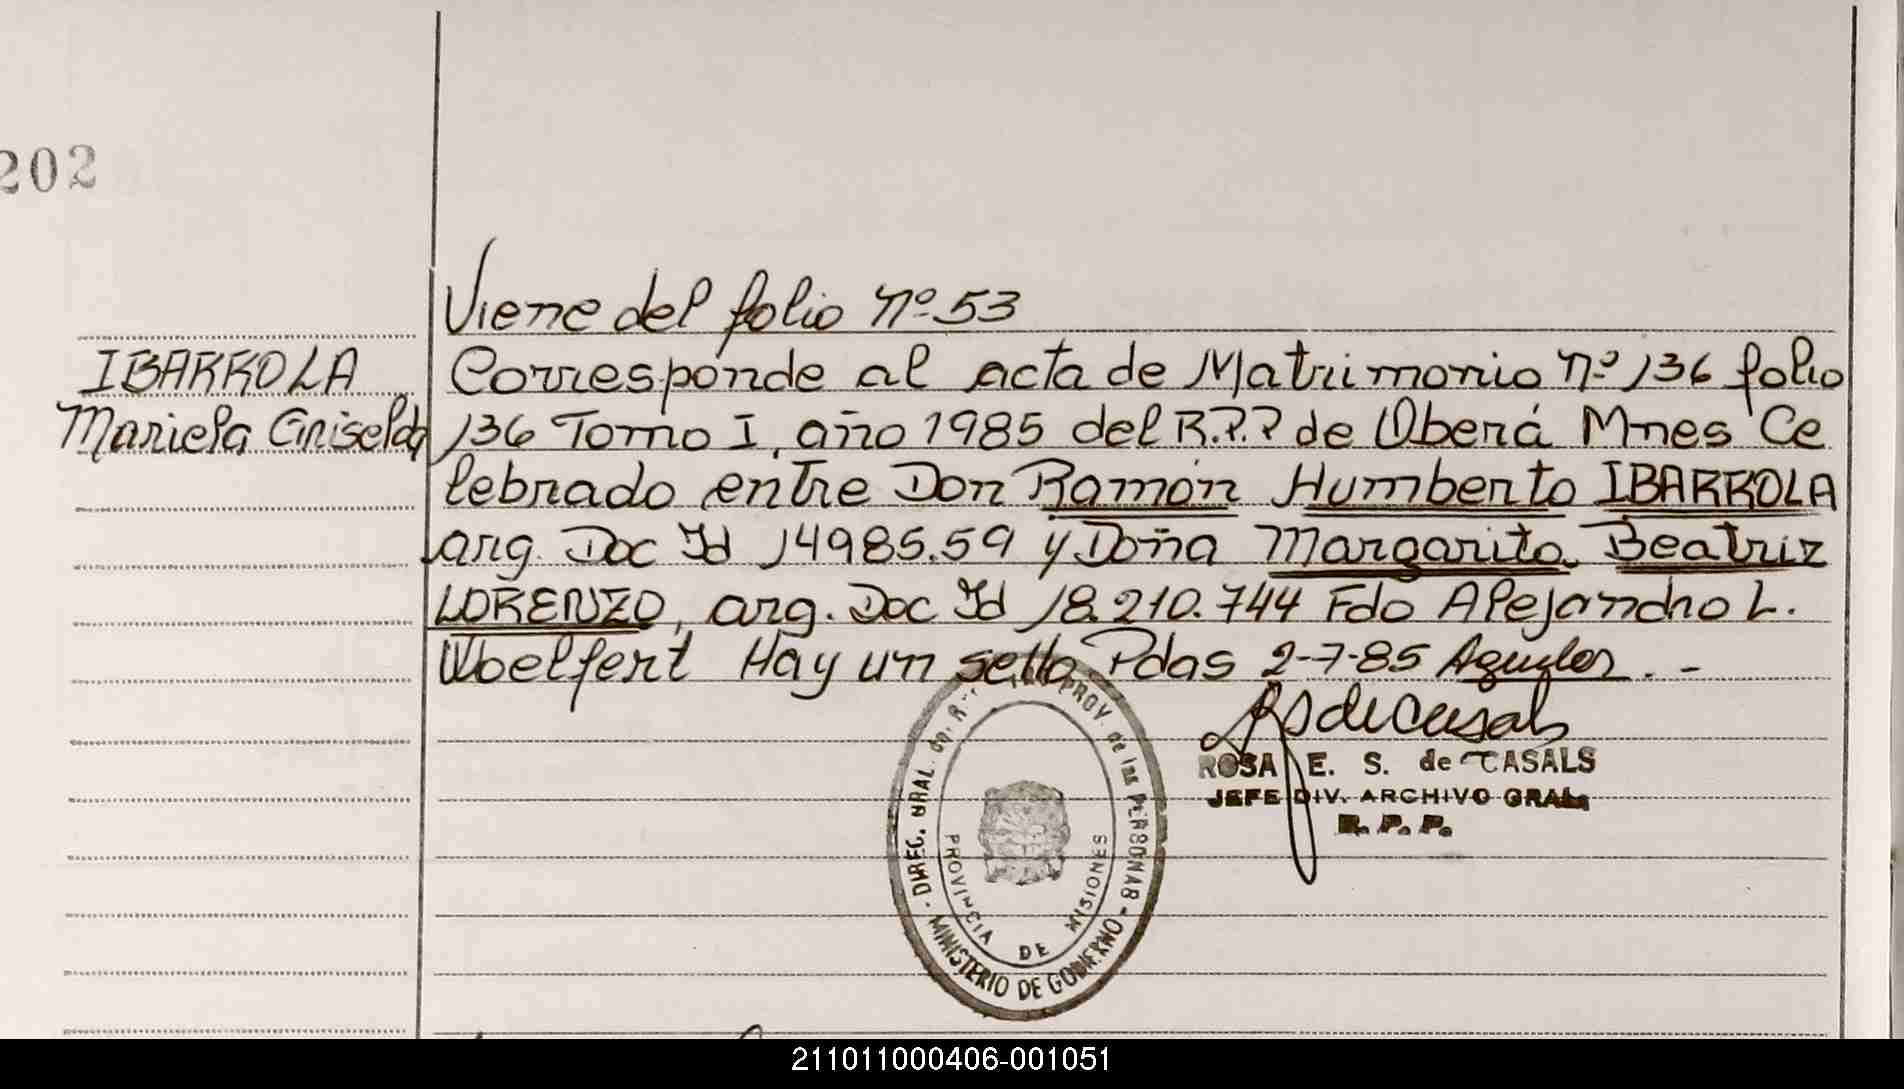 202
Viene del folio nº 53
IBARROLA
Mariela Griselda
Corresponde al acta de Matrimonio nº 136 folio
136 Tomo I, año 1985 del R.P.P de Oberá Mnes Ce
lebrado entre Don Ramón Humberto IBARROLA
arg. Doc Id 14985.59 y Doña Margarita Beatriz
LORENZO, arg. Doc Id 18.210.744 Fdo Alejandro L.
Woelfert Hay un sello Pdas 2-7-85 Aguilar . -
RSdeCasals
ROSA E. S. de CASALS
JEFE DIV. ARCHIVO GRAL.
R. P. P.
DIREC. GRAL. PROV. de las PERSONAS
MINISTERIO DE GOBIERNO
PROVINCIA DE MISIONES
211011000406-001051